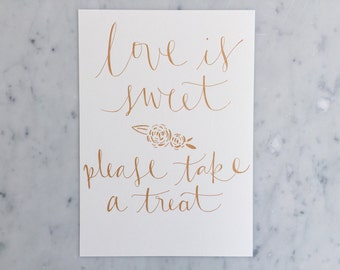 love is
sweet
please take
a treat